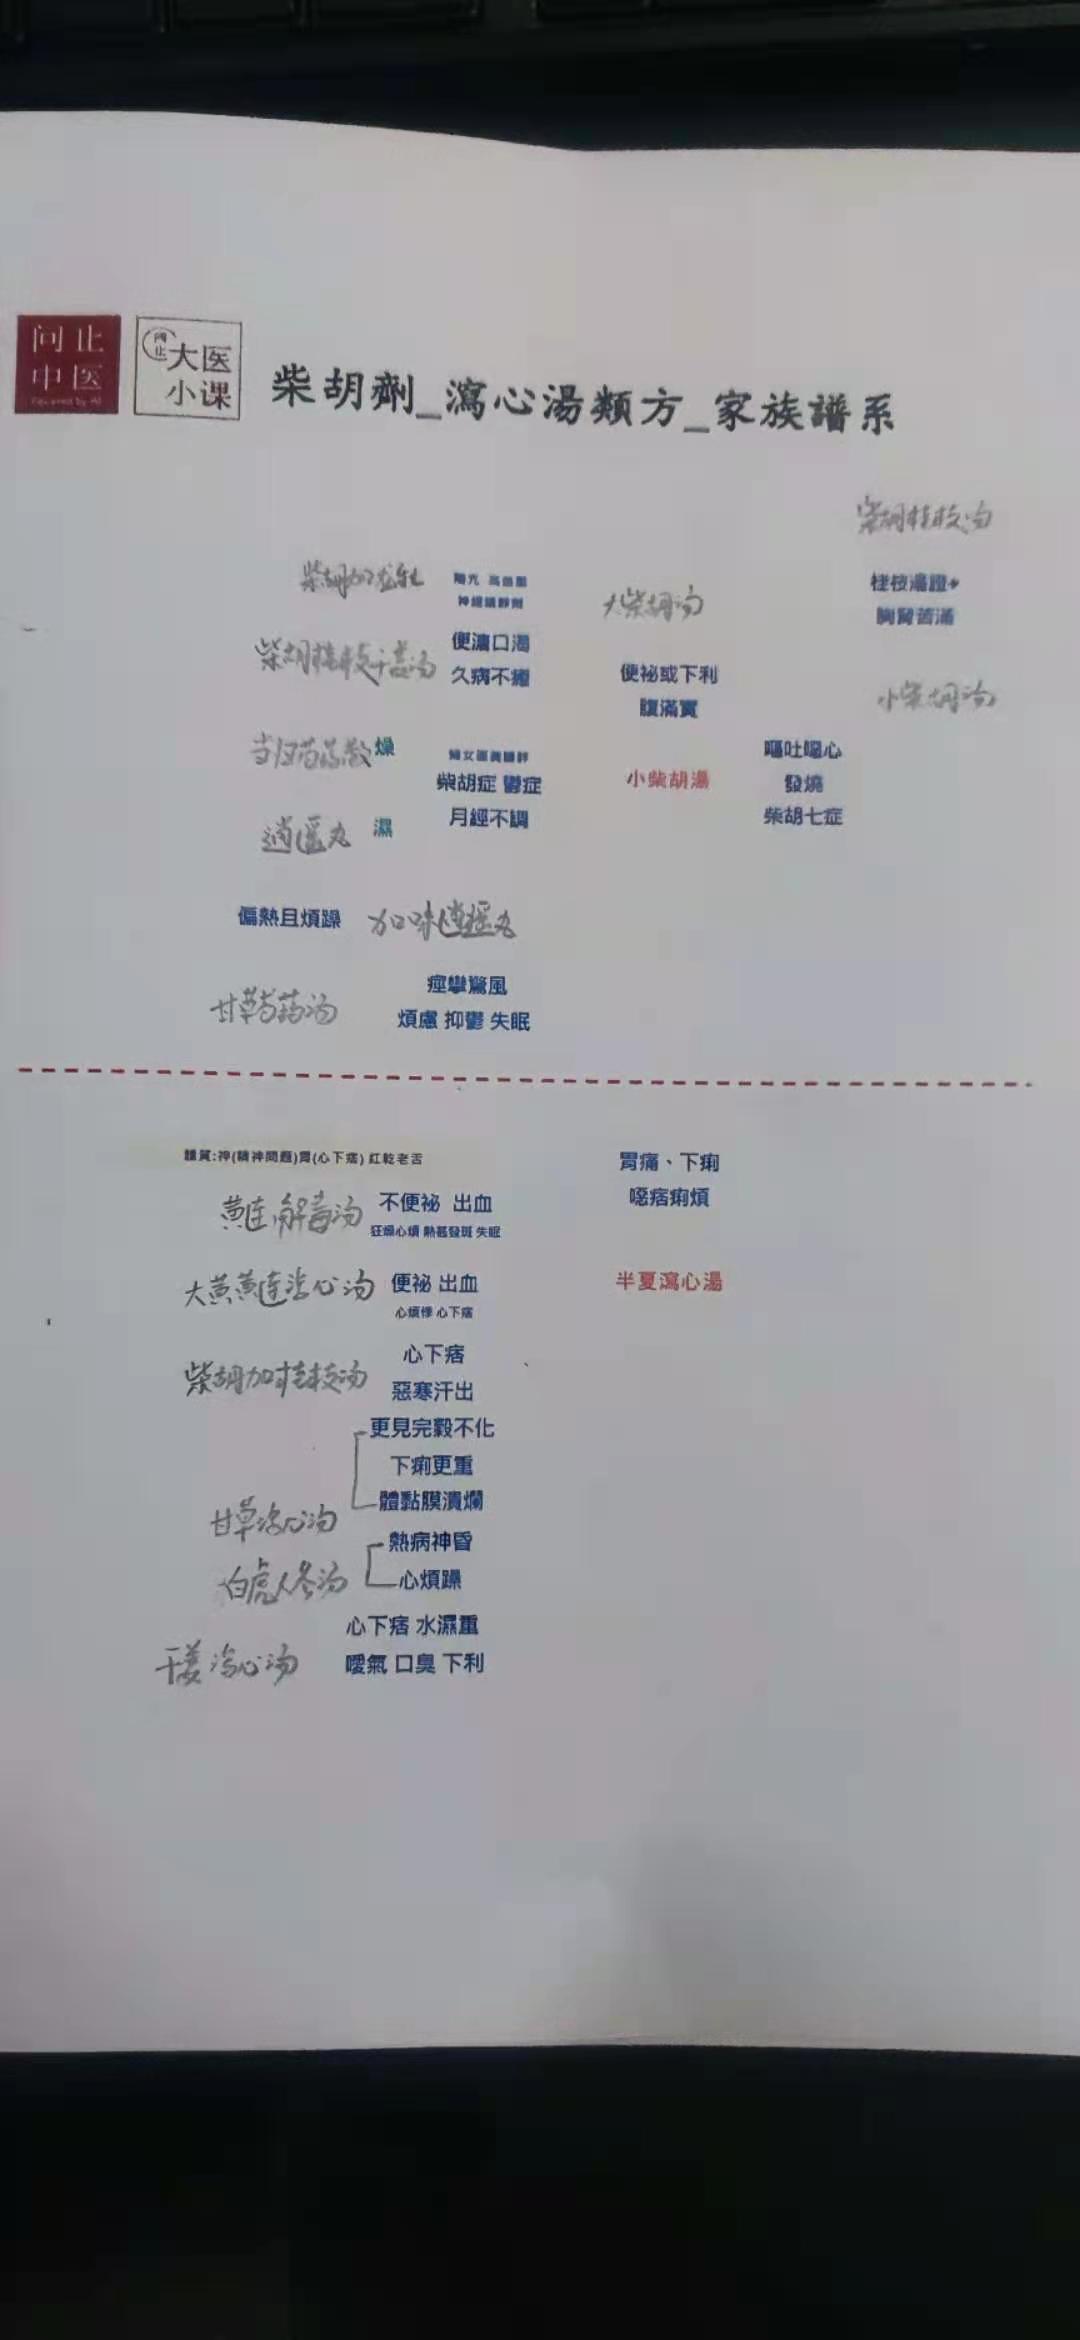 问止
中医
Powered by AI
问止
大医
小课
柴胡劑_瀉心湯類方_家族譜系
柴胡桂枝汤
柴胡加龙牡
陽亢 高血壓
神經鎮靜劑
大柴胡汤
桂枝湯證+
胸脅苦滿
柴胡桂枝干姜汤
便溏口渴
久病不癒
便祕或下利
腹滿實
小柴胡汤
当归芍药散
燥
柴胡症 鬱症
月經不調
小柴胡湯
嘔吐噁心
發燒
柴胡七症
逍遥丸
濕
偏熱且煩躁
加味逍遥丸
甘草芍药汤
痙攣驚風
煩慮 抑鬱 失眠
體質:神(精神問題)胃(心下痞) 紅乾老舌
胃痛、下痢
噁痞痢煩
黄连解毒汤
不便祕 出血
狂燥心煩 熱甚發斑 失眠
大黄黄连泻心汤
便祕 出血
心煩悸 心下痞
半夏瀉心湯
柴胡加桂枝汤
心下痞
惡寒汗出
更見完穀不化
下痢更重
體黏膜潰爛
甘草泻心汤
熱病神昏
心煩躁
白虎人参汤
心下痞 水濕重
噯氣 口臭 下利
干姜泻心汤